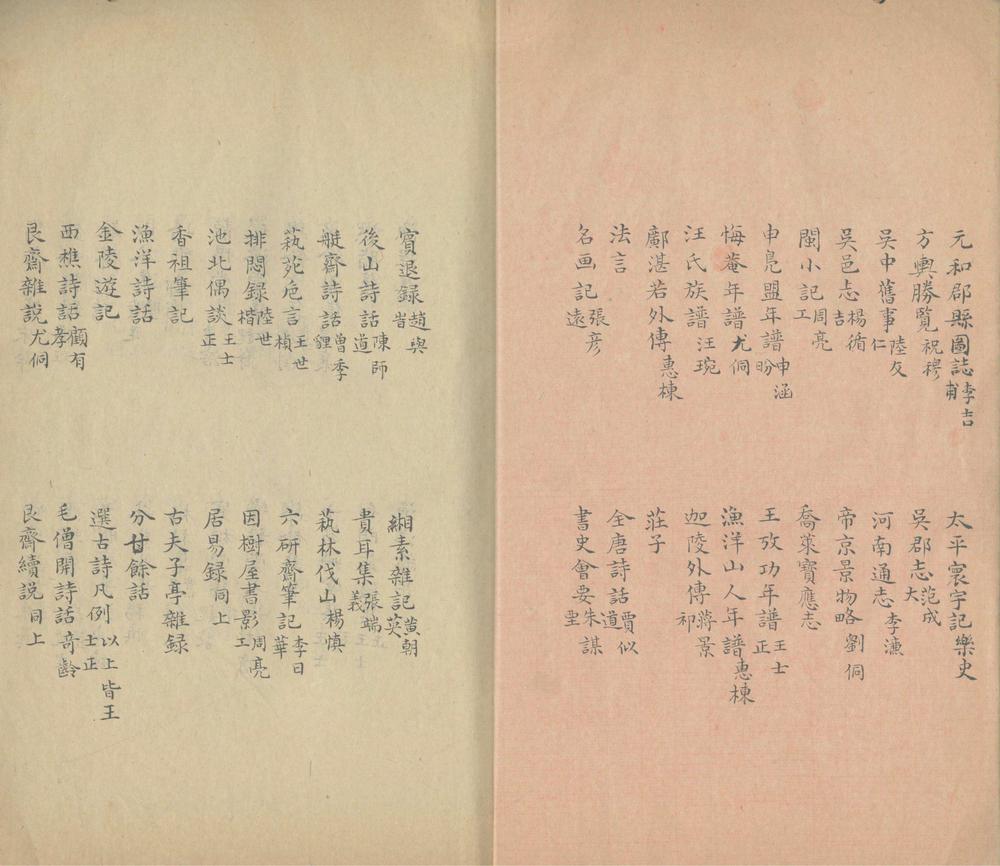 元和郡縣圖誌 李吉甫
太平寰宇記 樂史
方輿勝覽 祝穆
吳郡志 范成大
吳中舊事 陸友仁
河南通志 李濂
吳邑志 楊循吉
帝京景物略 劉侗
閩小記 周亮工
喬萊寶應志
申鳧盟年譜 申涵盼
王攷功年譜 王士正
悔菴年譜 尤侗
漁洋山人年譜 惠棟
汪氏族譜 汪琬
迦陵外傳 蔣景祁
鄺湛若外傳 惠棟
莊子
法言
全唐詩話 賈似道
名画記 張彥遠
書史會要 朱謀垔
賓退錄 趙與旹
緗素雜記 黃朝英
後山詩話 陳師道
貴耳集 張端義
艇齋詩話 曾季貍
蓺林伐山 楊慎
蓺苑卮言 王世楨
六研齋筆記 李日華
排悶録 陸世楷
因樹屋書影 周亮工
池北偶談 王士正
居易録 同上
香祖筆記
古夫于亭雜録
漁洋詩話
分甘餘話
金陵遊記
選古詩凡例 以上皆王士正
西樵詩話 顧有孝
毛僧開詩話 奇齡
艮齋雜說 尤侗
艮齋續説 同上